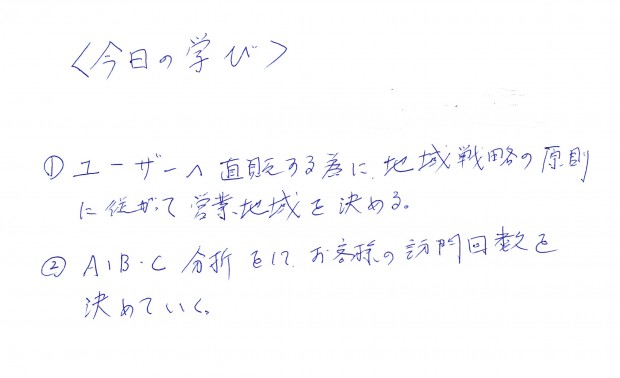 〈今日の学び〉
① ユーザーへ直販する為に、地域戦略の原則
に従がって営業地域を決める。
② A・B・C 分析をして、お客様の訪問回数を
決めていく。